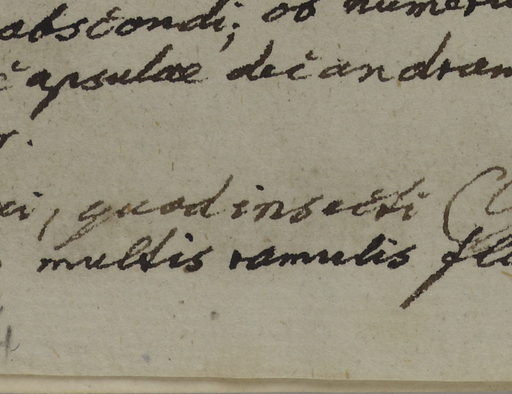 abscondi; ob numeru
capsulae decandram
r.
ci, quod insecti
multis ramulis flo